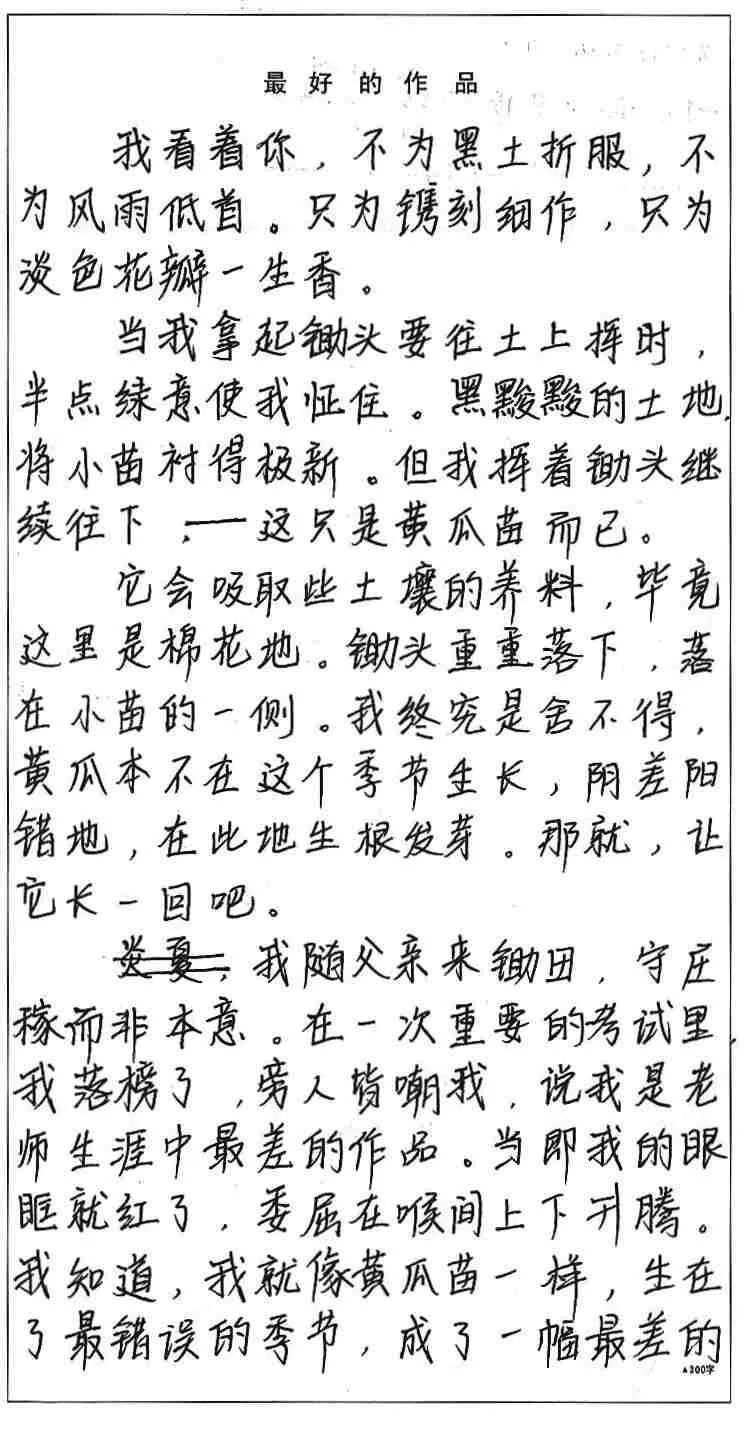 最好的作品
我看着你，不为黑土折服，不
为风雨低首。只为镌刻细作，只为
淡色花瓣一生香。
当我拿起锄头要往土上挥时，
半点绿意使我怔住。黑黢黢的土地，
将小苗衬得极新。但我挥着锄头继
续往下，——这只是黄瓜苗而已。
它会吸取些土壤的养料，毕竟
这里是棉花地。锄头重重落下，落
在小苗的一侧。我终究是舍不得，
黄瓜本不在这个季节生长，阴差阳
错地，在此地生根发芽。那就，让
它长一回吧。
炎夏，我随父亲来锄田，守庄
稼而非本意。在一次重要的考试里，
我落榜了，旁人皆嘲我，说我是老
师生涯中最差的作品。当即我的眼
眶就红了，委屈在喉间上下升腾。
我知道，我就像黄瓜苗一样，生在
了最错误的季节，成了一幅最差的
▲300字